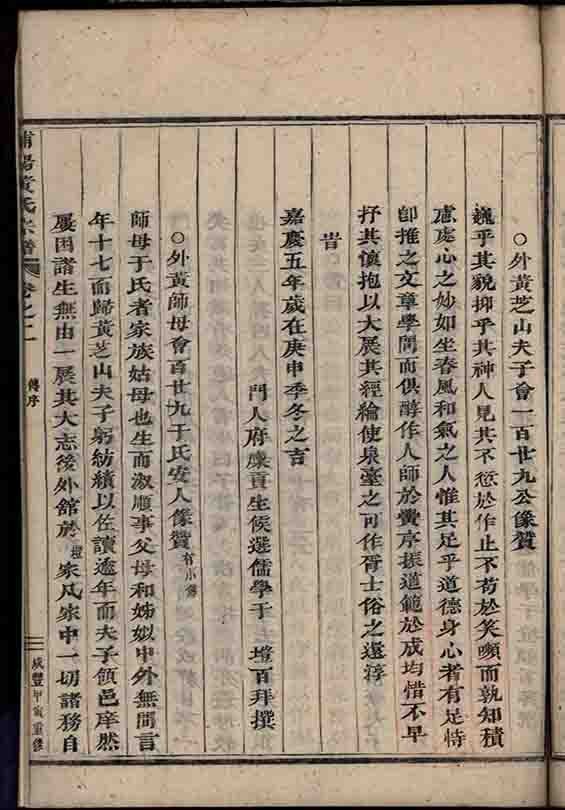 ○外黃芝山夫子會一百廿九公像贊
巍乎其貌抑乎其神人見其不愆於作止不苟於笑嚬而孰知積
慮處心之妙如坐春風和氣之人惟其足乎道德身心者有足恃
卽推之文章學問而俱醇作人師於黌序振道範於成均惜不早
抒其懷抱以大展其經綸使泉臺之可作胥士俗之還淳
旹
嘉慶五年歲在庚申季冬之吉
門人府廩貢生候選儒學于 壇百拜撰
○外黃師母會百廿九于氏安人像贊有小像
師母于氏者家族姑母也生而淑順事父母和姊姒中外無閒言
年十七而歸黃芝山夫子躬紡績以佐讀逾年而夫子領邑庠然
屢困諸生無由一展其大志後外舘於壇家凡家中一切諸務自
浦陽黃氏宗譜 卷之二 傳序 咸豐甲寅重修